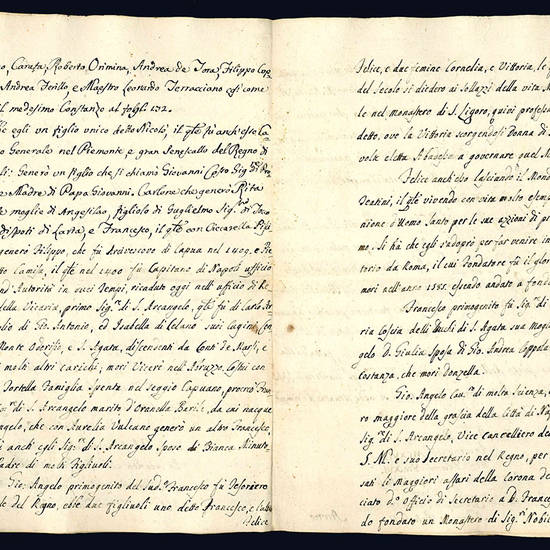 no, Carafa, Roberto Orimina, Andrea de Tora, Filippo Cop
Andrea Terillo, e Maestro Leonardo Terracciano così come
il medesimo Constanzo al fogli 172.
egli un figlio unico detto Nicolò, il qle fù anch'esso Ca
Generale nel Piemonte e gran Senescallo del Regno di
li: Generò un figlio che si chiamò Giovanni Cossa Sig.
e Madre di Papa Giovanni. Carlora che generò Rita
e moglie di Angesilao, figliolo di Guglielmo Sig.
Dispoti di Larta, e Francesco, il qle con Ciccarella
generò Filippo, che fù Arcivescovo di Capua nel 1409. e
Camisa, il qle nel 1400 fù Capitano di Napoli officio
Autorità in quei tempi, ricaduto oggi nell'ufficio di Re
della Vicaria, primo Sig.r di S. Arcangelo, qle fù di Carlo
lio di Gio: Antonio, ed Isabella di Celano suoi Cugini
Monte Oderisio, e S. Agata, discendenti da Conti de Marsi, e
molti altri carichi, morì Viceri nell'Abruzzo. Costui con
Tortella famiglia spenta nel seggio Capuano, procreò
di S. Arcangelo marito d'Ormella Barile, da cui nacque
Angelo, che con Aurelia Vulcano generò un altro Francesco,
anch'egli Sig.r di S. Arcangelo sposo di Bianca Minuto
Madre di molti figliuoli.
Gio: Angelo primogenito del Sud.o Francesco fù Tesoriero
le del Regno, ebbe due figliuoli uno detto Francesco, e l'altro
Felice
Felice, e due femine Cornelia, e Vittoria, le q
del Secolo si diedero ai sollazzi della vita M
le nel monastero di S. Ligoro, quivi profess
detto, ove la Vittoria scorgendosi Donna di
volte eletta Abadessa a governare quel M
Felice anch'esso lasciando il Mond
Teatini, il qle vivendo con vita molto esemp
nione d'Uomo Santo per le sue azioni di p
mo. Si hà che egli s'adoprò per far venire in
torio da Roma, il cui fondatore fù il glor
morì nell'anno 1585. essendo andato a fond
Francesco primogenito fù Sig.r di
ria Coscia delli Duchi di S. Agata sua mog
gelo D. Giulia Sposa di Gio: Andrea Coppola
Costanza, che morì donzella.
Gio: Angelo Cav.r di molta Scienza, e
ro maggiore della grascia della città di Nap
Sig.r di S. Arcangelo, Vice Cancelliero de
S. M. e suo Secretario nel Regno, per
sati li maggiori affari della Corona de
ciato d.o Officio di Secretario a D. Franc
do fondato un Monastero di Sig.re Nobil